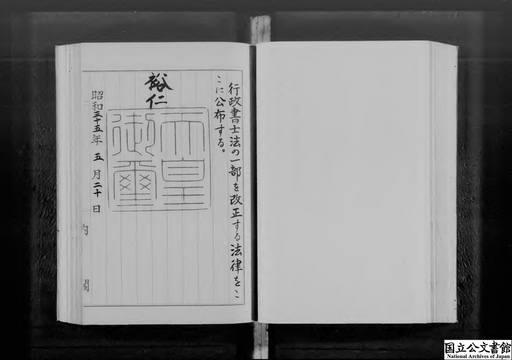 行政書士法の一部を改正する法律をこ
こに公布する。
裕仁
天皇
御璽
昭和三十五年五月二十日
内閣
国立公文書館
National Archives of Japan